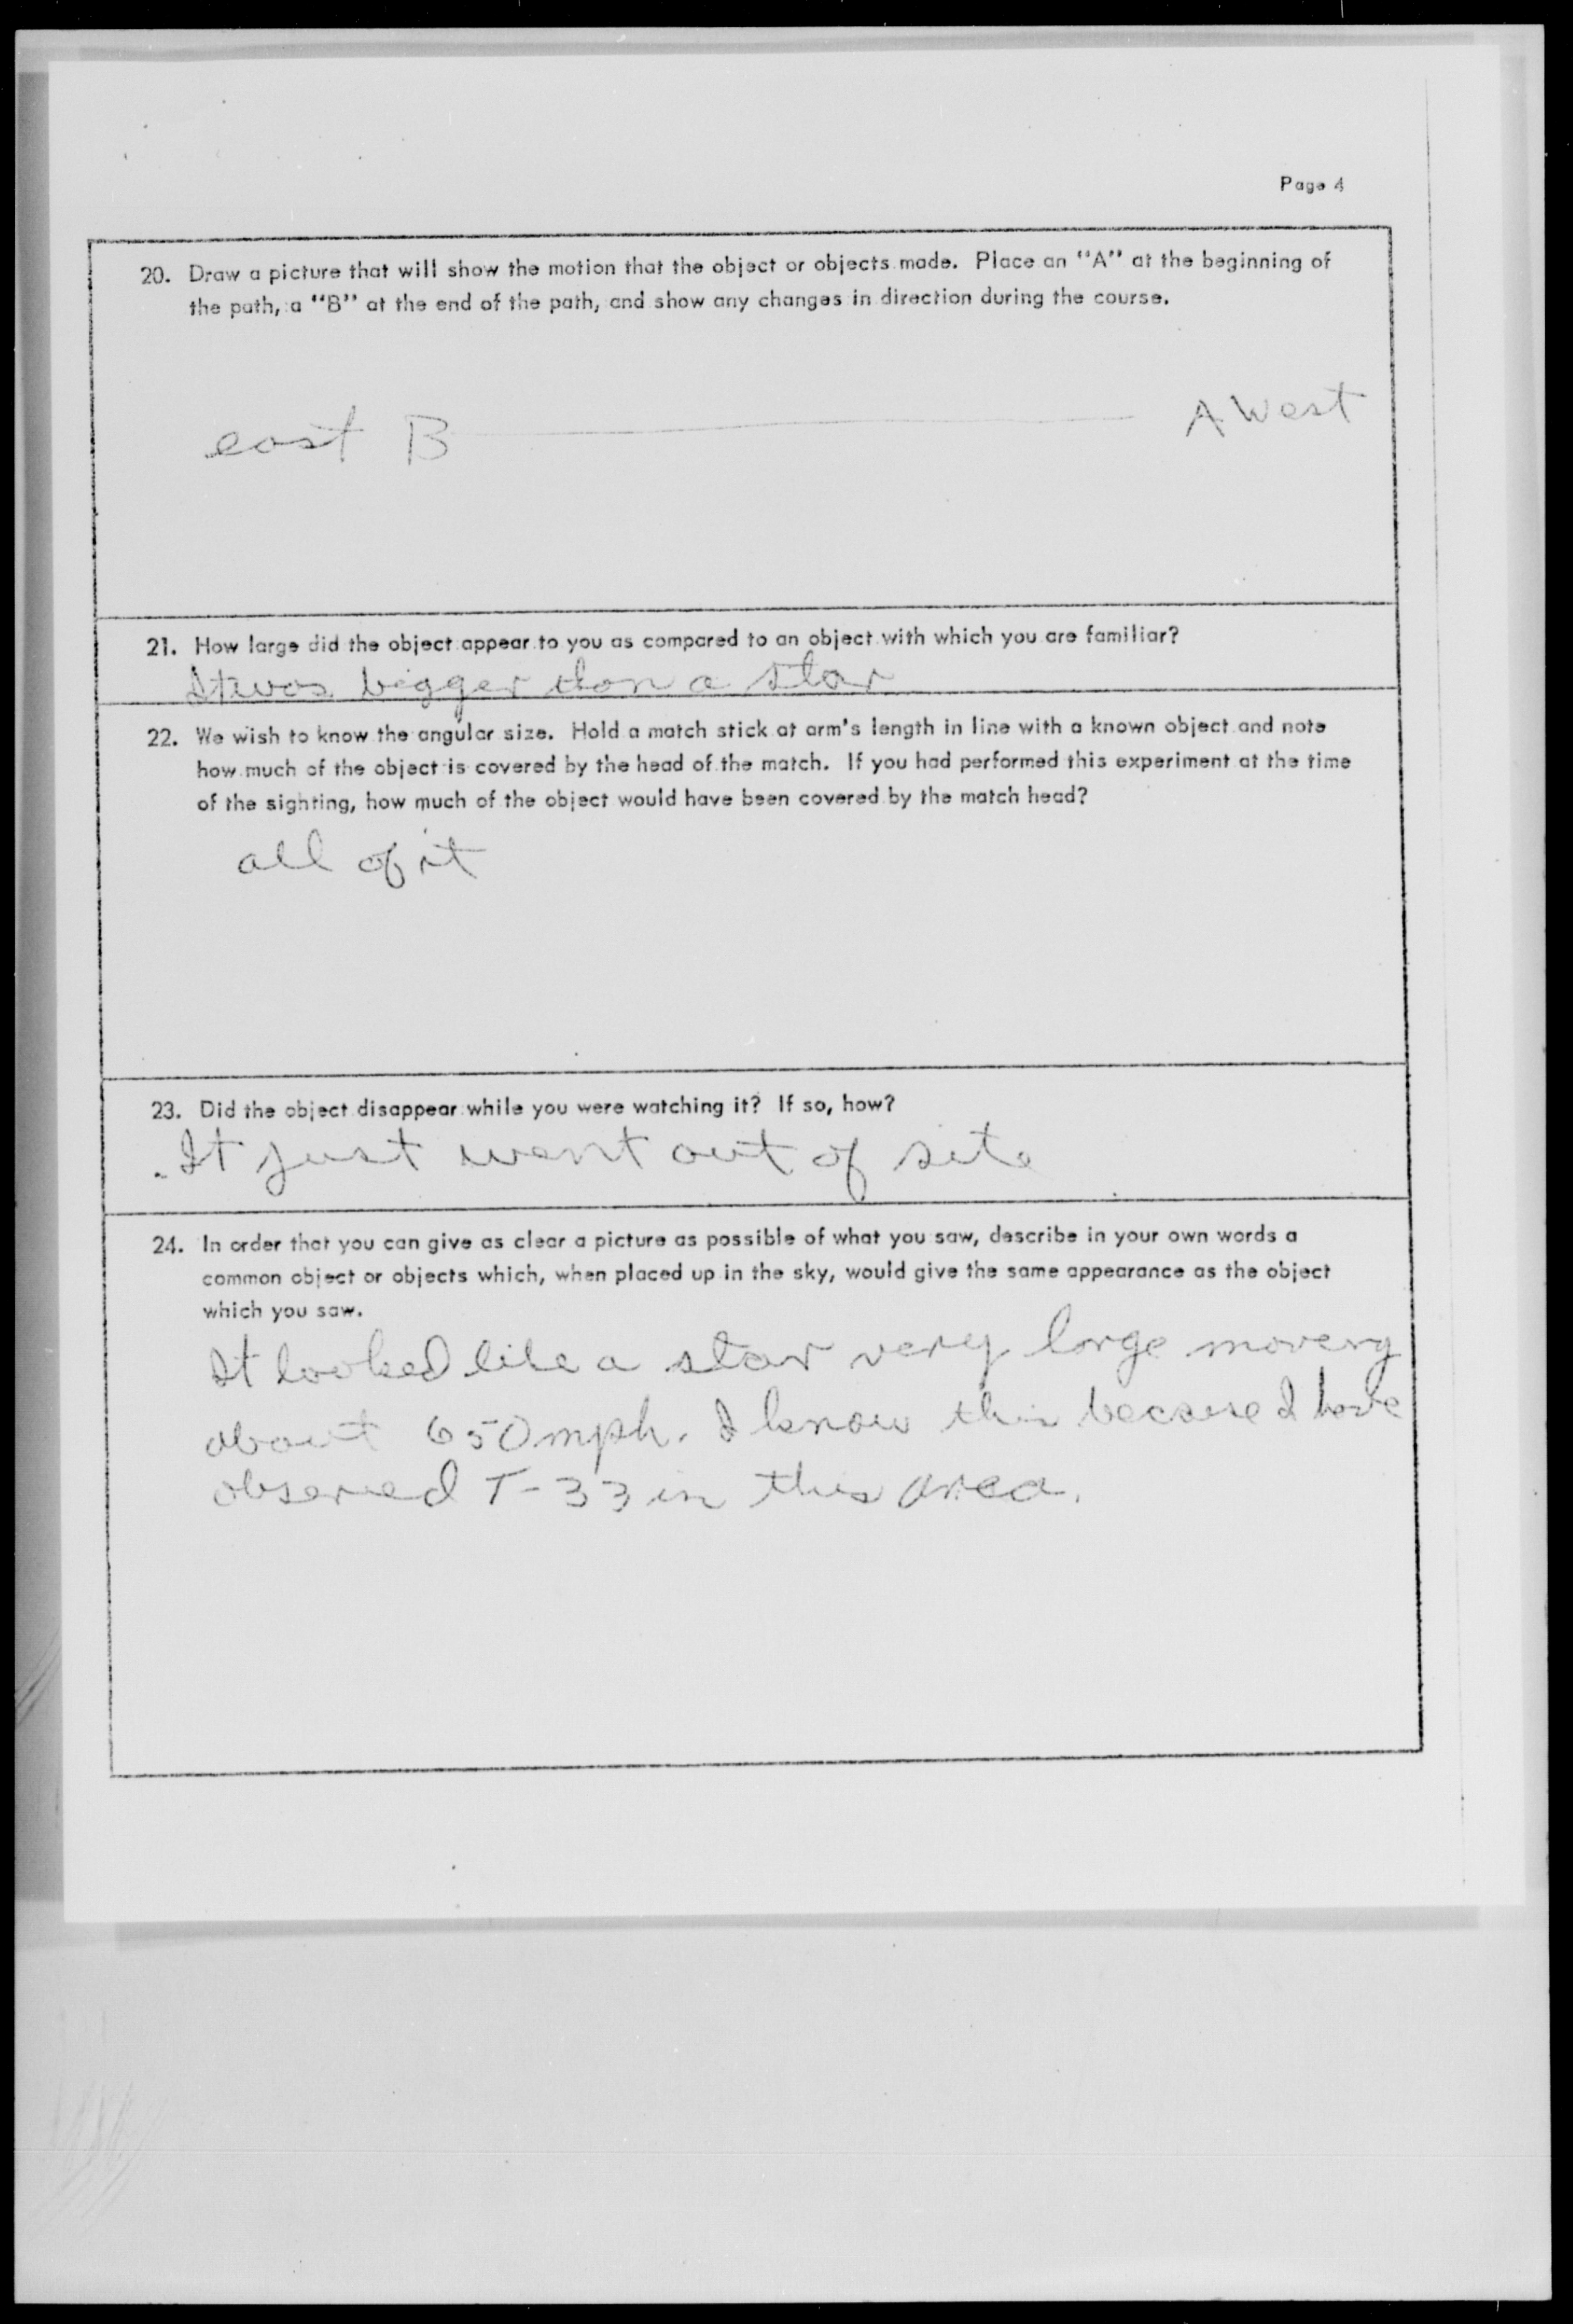 Page 4
20. Draw a picture that will show the motion that the object or objects made. Place an "A" at the beginning of
the path, a "B" at the end of the path, and show any changes in direction during the course.
east B A West
21. How large did the object appear to you as compared to an object with which you are familiar?
It was bigger than a star
22. We wish to know the angular size. Hold a match stick at arm's length in line with a known object and note
how much of the object is covered by the head of the match. If you had performed this experiment at the time
of the sighting, how much of the object would have been covered by the match head?
all of it
23. Did the object disappear while you were watching it? If so, how?
It just went out of site
24. In order that you can give as clear a picture as possible of what you saw, describe in your own words a
common object or objects which, when placed up in the sky, would give the same appearance as the object
which you saw.
It looked like a star very large moveing
about 650 mph. I know this because I have
observed T-33 in this area.